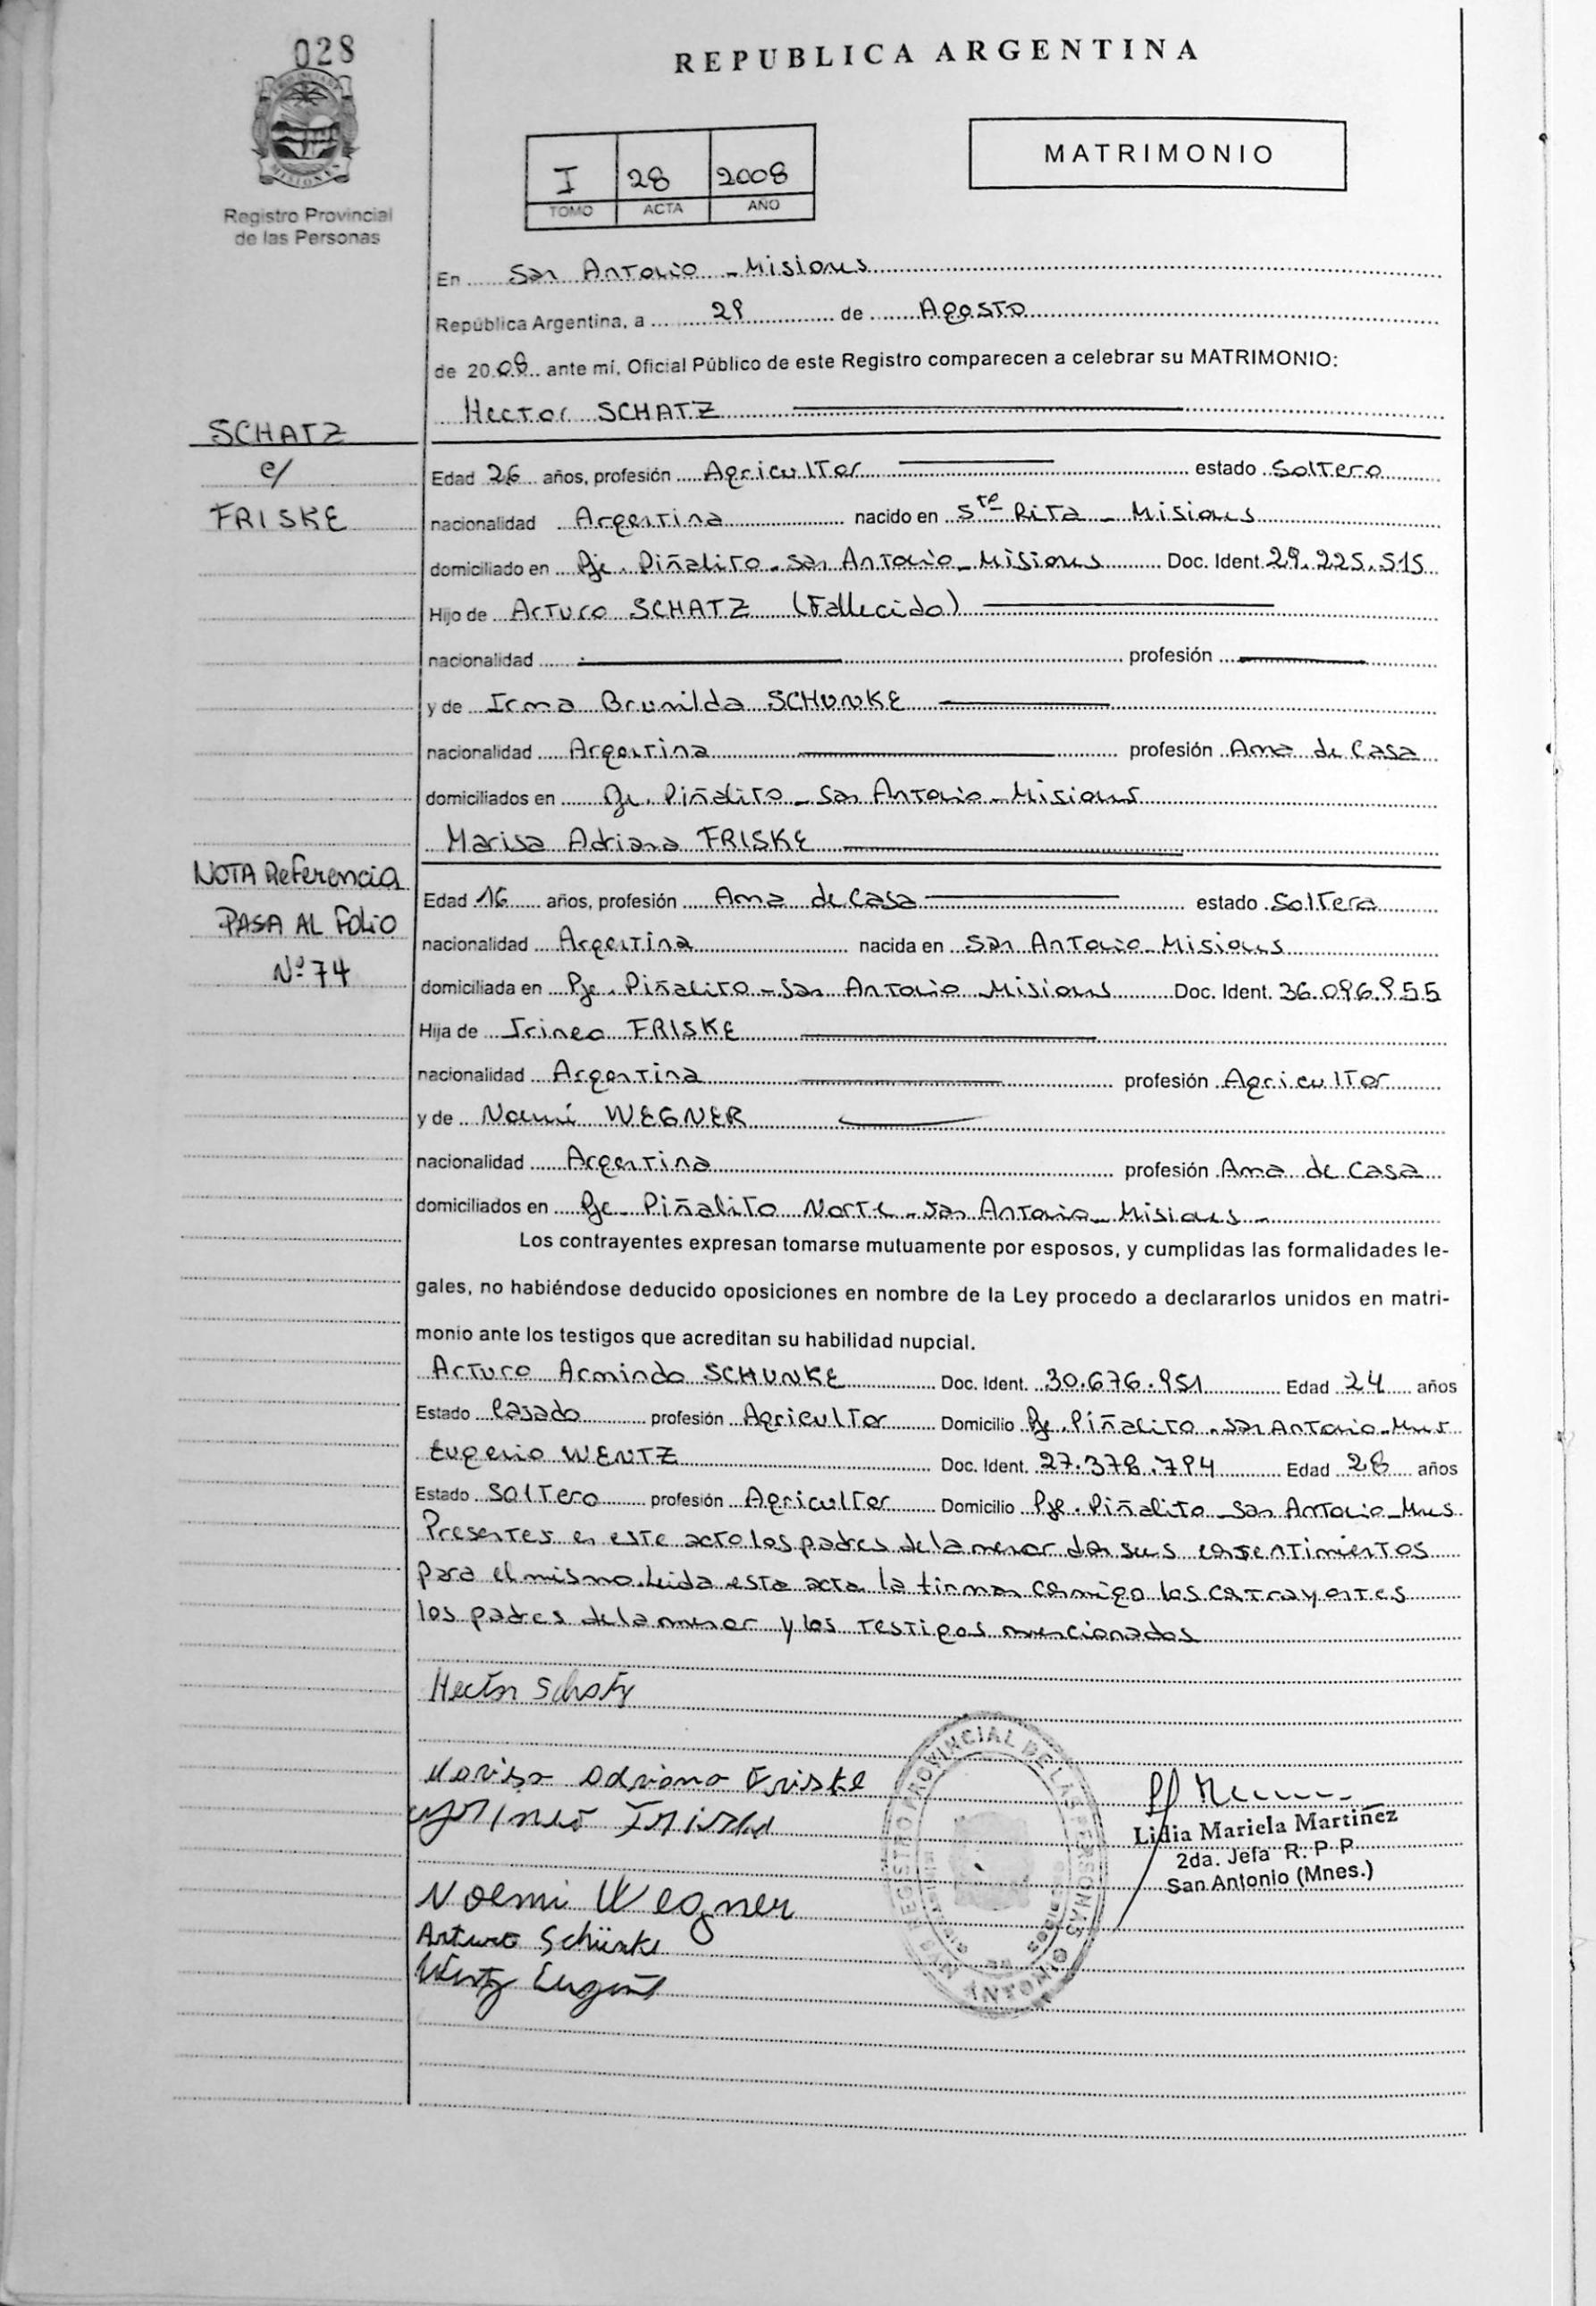 028
REPUBLICA ARGENTINA
MATRIMONIO
I 28 2008
TOMO ACTA AÑO
Registro Provincial
de las Personas
En San Antonio - Misiones
República Argentina, a 29 de Agosto
de 2008 ante mí, Oficial Público de este Registro comparecen a celebrar su MATRIMONIO:
Hector SCHATZ
SCHATZ
c/
FRISKE
Edad 26 años, profesión Agricultor estado Soltero
nacionalidad Argentina nacido en Sta Rita - Misiones
domiciliado en Pje. Piñalito - San Antonio - Misiones Doc. Ident. 29.225.515
Hijo de Arturo SCHATZ (Fallecido)
nacionalidad profesión
y de Irma Brunilda SCHUNKE
nacionalidad Argentina profesión Ama de Casa
domiciliados en Pje. Piñalito - San Antonio - Misiones
Marisa Adriana FRISKE
NOTA Referencia
PASA AL Folio
Nº 74
Edad 16 años, profesión Ama de Casa estado Soltera
nacionalidad Argentina nacida en San Antonio - Misiones
domiciliada en Pje. Piñalito - San Antonio Misiones Doc. Ident. 36.096.955
Hija de Irineo FRISKE
nacionalidad Argentina profesión Agricultor
y de Noemí WEGNER
nacionalidad Argentina profesión Ama de Casa
domiciliados en Pje - Piñalito Norte - San Antonio - Misiones -
Los contrayentes expresan tomarse mutuamente por esposos, y cumplidas las formalidades le-
gales, no habiéndose deducido oposiciones en nombre de la Ley procedo a declararlos unidos en matri-
monio ante los testigos que acreditan su habilidad nupcial.
Arturo Armindo SCHUNKE Doc. Ident. 30.676.951 Edad 24 años
Estado Casado profesión Agricultor Domicilio Pje. Piñalito - San Antonio - Mnes
Eugenio WENTZ Doc. Ident. 27.378.794 Edad 28 años
Estado Soltero profesión Agricultor Domicilio Pje. Piñalito - San Antonio - Mnes
Presentes en este acto los padres de la menor dan sus consentimientos
para el mismo. Leida esta acta la firman conmigo los contrayentes
los padres de la menor y los testigos mencionados
Hector Schatz
Marisa Adriana Friske
Noemi Wegner
Arturo Schünke
Wentz Eugenio
REGISTRO PROVINCIAL DE LAS PERSONAS
SAN ANTONIO
Lidia Mariela Martinez
2da. Jefa R. P. P.
San Antonio (Mnes.)